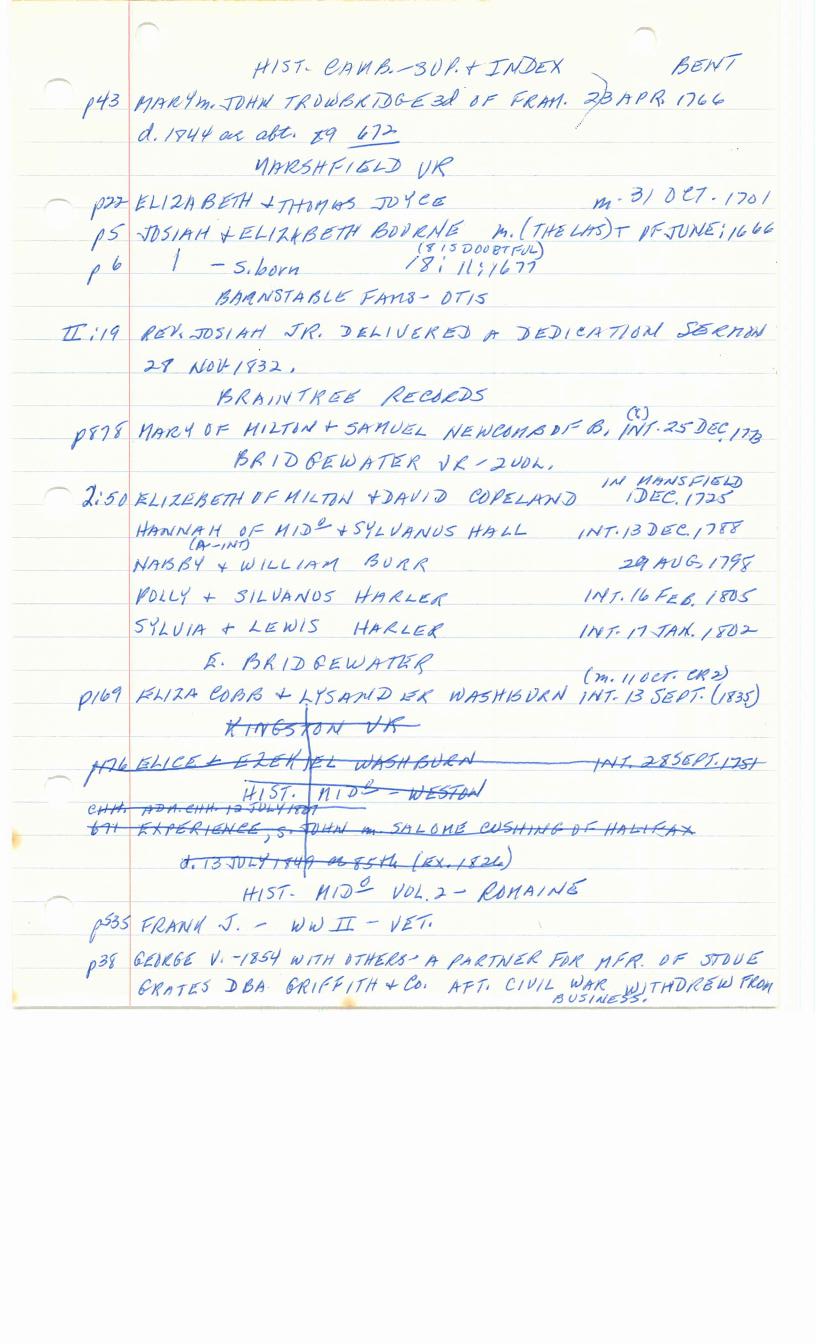 HIST. CAMB.-SUP. + INDEX BENT
p43 MARY m. JOHN TROWBRIDGE 3d OF FRAM. 23 APR. 1766
d. 1844 ae abt. 89 672
MARSHFIELD VR
p22 ELIZABETH + THOMAS JOYCE m. 31 OCT. 1701
p5 JOSIAH + ELIZABETH BOURNE m. (THE LAS)T OF JUNE; 1666
(8 IS DOUBTFUL)
p 6 | - S. born 18; 11; 1677
BARNSTABLE FAMS - OTIS
II:19 REV. JOSIAH JR. DELIVERED A DEDICATION SERMON
28 NOV. 1832.
BRAINTREE RECORDS
(8)
p878 MARY OF MILTON + SAMUEL NEWCOMB OF B. INT. 25 DEC. 1773
BRIDGEWATER VR - 2 VOL.
IN MANSFIELD
2:50 ELIZEBETH OF MILTON + DAVID COPELAND 1 DEC. 1725
HANNAH OF MIDº + SYLVANUS HALL INT. 13 DEC. 1788
(A-INT)
NABBY + WILLIAM BURR 29 AUG. 1798
POLLY + SILVANUS HARLER INT. 16 FEB. 1805
SYLVIA + LEWIS HARLER INT. 17 JAN. 1802
E. BRIDGEWATER
(m. 11 OCT. CR2)
p169 ELIZA COBB + LYSANDER WASHBURN INT. 13 SEPT. (1835)
KINGSTON VR
p176 ELICE + EZEKIEL WASHBURN INT. 28 SEPT. 1751
HIST. MIDº - WESTON
CHH. ADM. CHH. 12 JULY 1807
671 EXPERIENCE, S. JOHN m. SALOME CUSHING OF HALIFAX
d. 13 JULY 1849 a 85th (EX. 1826)
HIST. MIDº VOL. 2 - ROMAINE
p535 FRANK J. - WW II - VET.
p38 GEORGE V. - 1854 WITH OTHERS - A PARTNER FOR MFR. OF STOVE
GRATES DBA GRIFFITH + Co. AFT. CIVIL WAR WITHDREW FROM
BUSINESS.